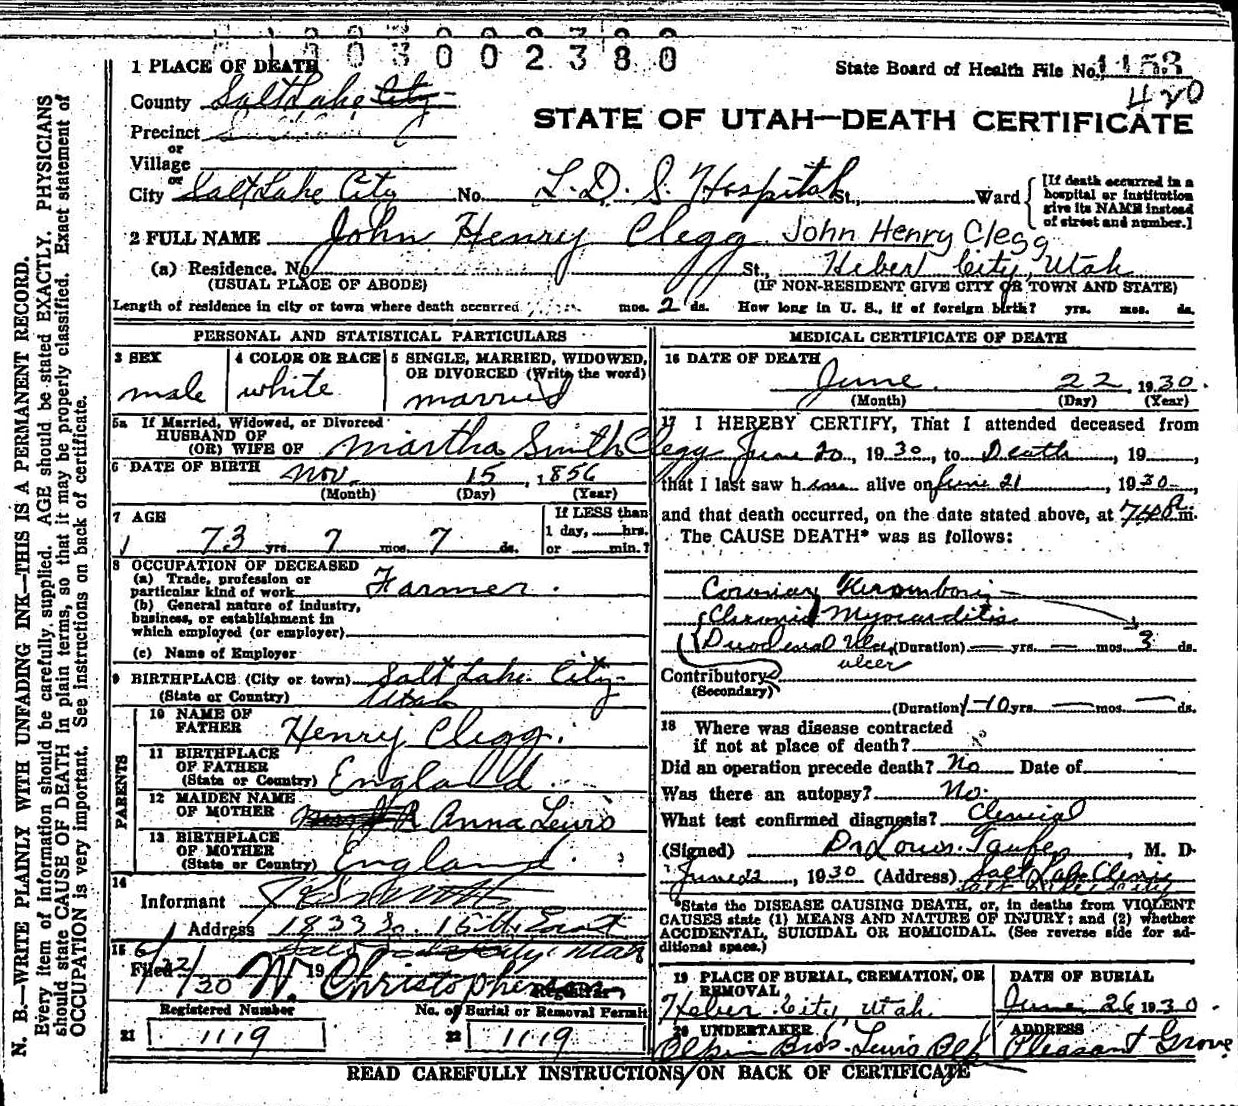 1300300 2 3 8 0
1 PLACE OF DEATH
State Board of Health File No. 1153
420
County Salt Lake City
STATE OF UTAH—DEATH CERTIFICATE
Precinct
or
Village
or
City Salt Lake City No. L. D. S. Hospital St., Ward
[If death occurred in a hospital or institution give its NAME instead of street and number.]
2 FULL NAME John Henry Clegg John Henry Clegg
(a) Residence. No. St., Heber City, Utah
(USUAL PLACE OF ABODE) (IF NON-RESIDENT GIVE CITY OR TOWN AND STATE)
Length of residence in city or town where death occurred mos. 2 ds. How long in U. S., if of foreign birth? yrs. mos. ds.
PERSONAL AND STATISTICAL PARTICULARS
3 SEX
male
4 COLOR OR RACE
white
5 SINGLE, MARRIED, WIDOWED, OR DIVORCED (Write the word)
married
5a If Married, Widowed, or Divorced
HUSBAND OF
(OR) WIFE OF Martha Smith Clegg
6 DATE OF BIRTH Nov. 15, 1856
(Month) (Day) (Year)
7 AGE
73 yrs. 7 mos. 7 ds.
If LESS than
1 day, hrs.
or min.?
8 OCCUPATION OF DECEASED
(a) Trade, profession or
particular kind of work Farmer.
(b) General nature of industry,
business, or establishment in
which employed (or employer)
(c) Name of Employer
9 BIRTHPLACE (City or town) Salt Lake City
(State or Country) Utah
PARENTS
10 NAME OF
FATHER Henry Clegg.
11 BIRTHPLACE
OF FATHER
(State or Country) England
12 MAIDEN NAME
OF MOTHER Anna Lewis
13 BIRTHPLACE
OF MOTHER
(State or Country) England
14
Informant
Address 1833 So. 15th East
15
Filed 6/22/30 19 N. Christopherson
Registrar
Registered Number
21 1119
No. of Burial or Removal Permit
22 1119
MEDICAL CERTIFICATE OF DEATH
16 DATE OF DEATH
June 22, 1930.
(Month) (Day) (Year)
17 I HEREBY CERTIFY, That I attended deceased from
June 20, 1930, to Death, 19
that I last saw him alive on June 21, 1930,
and that death occurred, on the date stated above, at m.
The CAUSE DEATH* was as follows:
Coronary Thrombosis
Chronic Myocarditis
Duodenal Ulcer (Duration) — yrs. — mos. 3 ds.
ulcer
Contributory
(Secondary)
(Duration) 1-10 yrs. — mos. — ds.
18 Where was disease contracted
if not at place of death? No
Did an operation precede death? No Date of
Was there an autopsy? No.
What test confirmed diagnosis? Clinical
(Signed) Dr Louis, M. D.
June 22, 1930 (Address) Salt Lake Clinic
Salt Lake City
*State the DISEASE CAUSING DEATH, or, in deaths from VIOLENT
CAUSES state (1) MEANS AND NATURE OF INJURY; and (2) whether
ACCIDENTAL, SUICIDAL OR HOMICIDAL. (See reverse side for ad-
ditional space.)
19 PLACE OF BURIAL, CREMATION, OR
REMOVAL
Heber City, Utah.
DATE OF BURIAL
June 26 1930.
20 UNDERTAKER
Olpin Bros.
ADDRESS
Pleasant Grove
READ CAREFULLY INSTRUCTIONS ON BACK OF CERTIFICATE
N. B.—WRITE PLAINLY WITH UNFADING INK—THIS IS A PERMANENT RECORD.
Every item of information should be carefully supplied. AGE should be stated EXACTLY. PHYSICIANS
should state CAUSE OF DEATH in plain terms, so that it may be properly classified. Exact statement of
OCCUPATION is very important. See instructions on back of certificate.